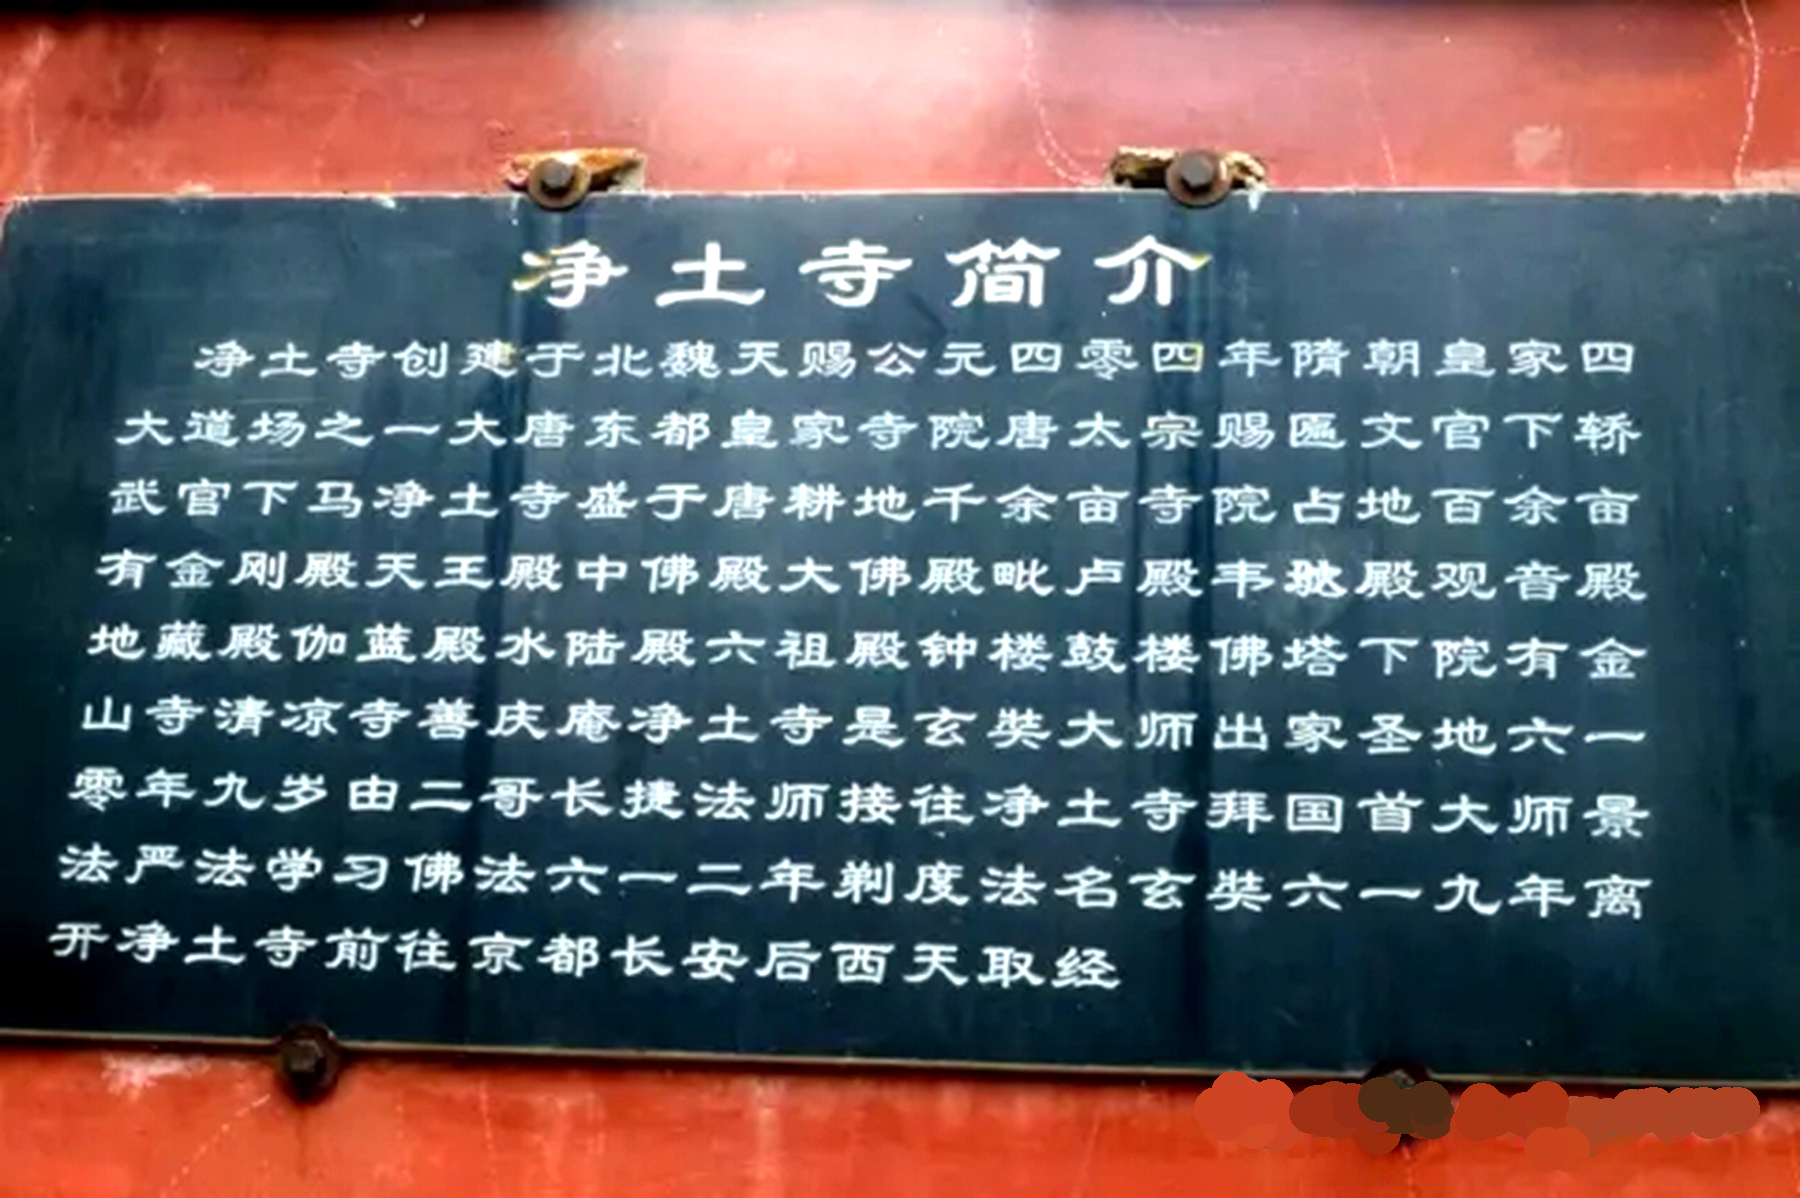 净土寺简介
净土寺创建于北魏天赐公元四零四年隋朝皇家四
大道场之一大唐东都皇家寺院唐太宗赐匾文官下轿
武官下马净土寺盛于唐耕地千余亩寺院占地百余亩
有金刚殿天王殿中佛殿大佛殿毗卢殿韦驮殿观音殿
地藏殿伽蓝殿水陆殿六祖殿钟楼鼓楼佛塔下院有金
山寺清凉寺善庆庵净土寺是玄奘大师出家圣地六一
零年九岁由二哥长捷法师接往净土寺拜国首大师景
法严法学习佛法六一二年剃度法名玄奘六一九年离
开净土寺前往京都长安后西天取经